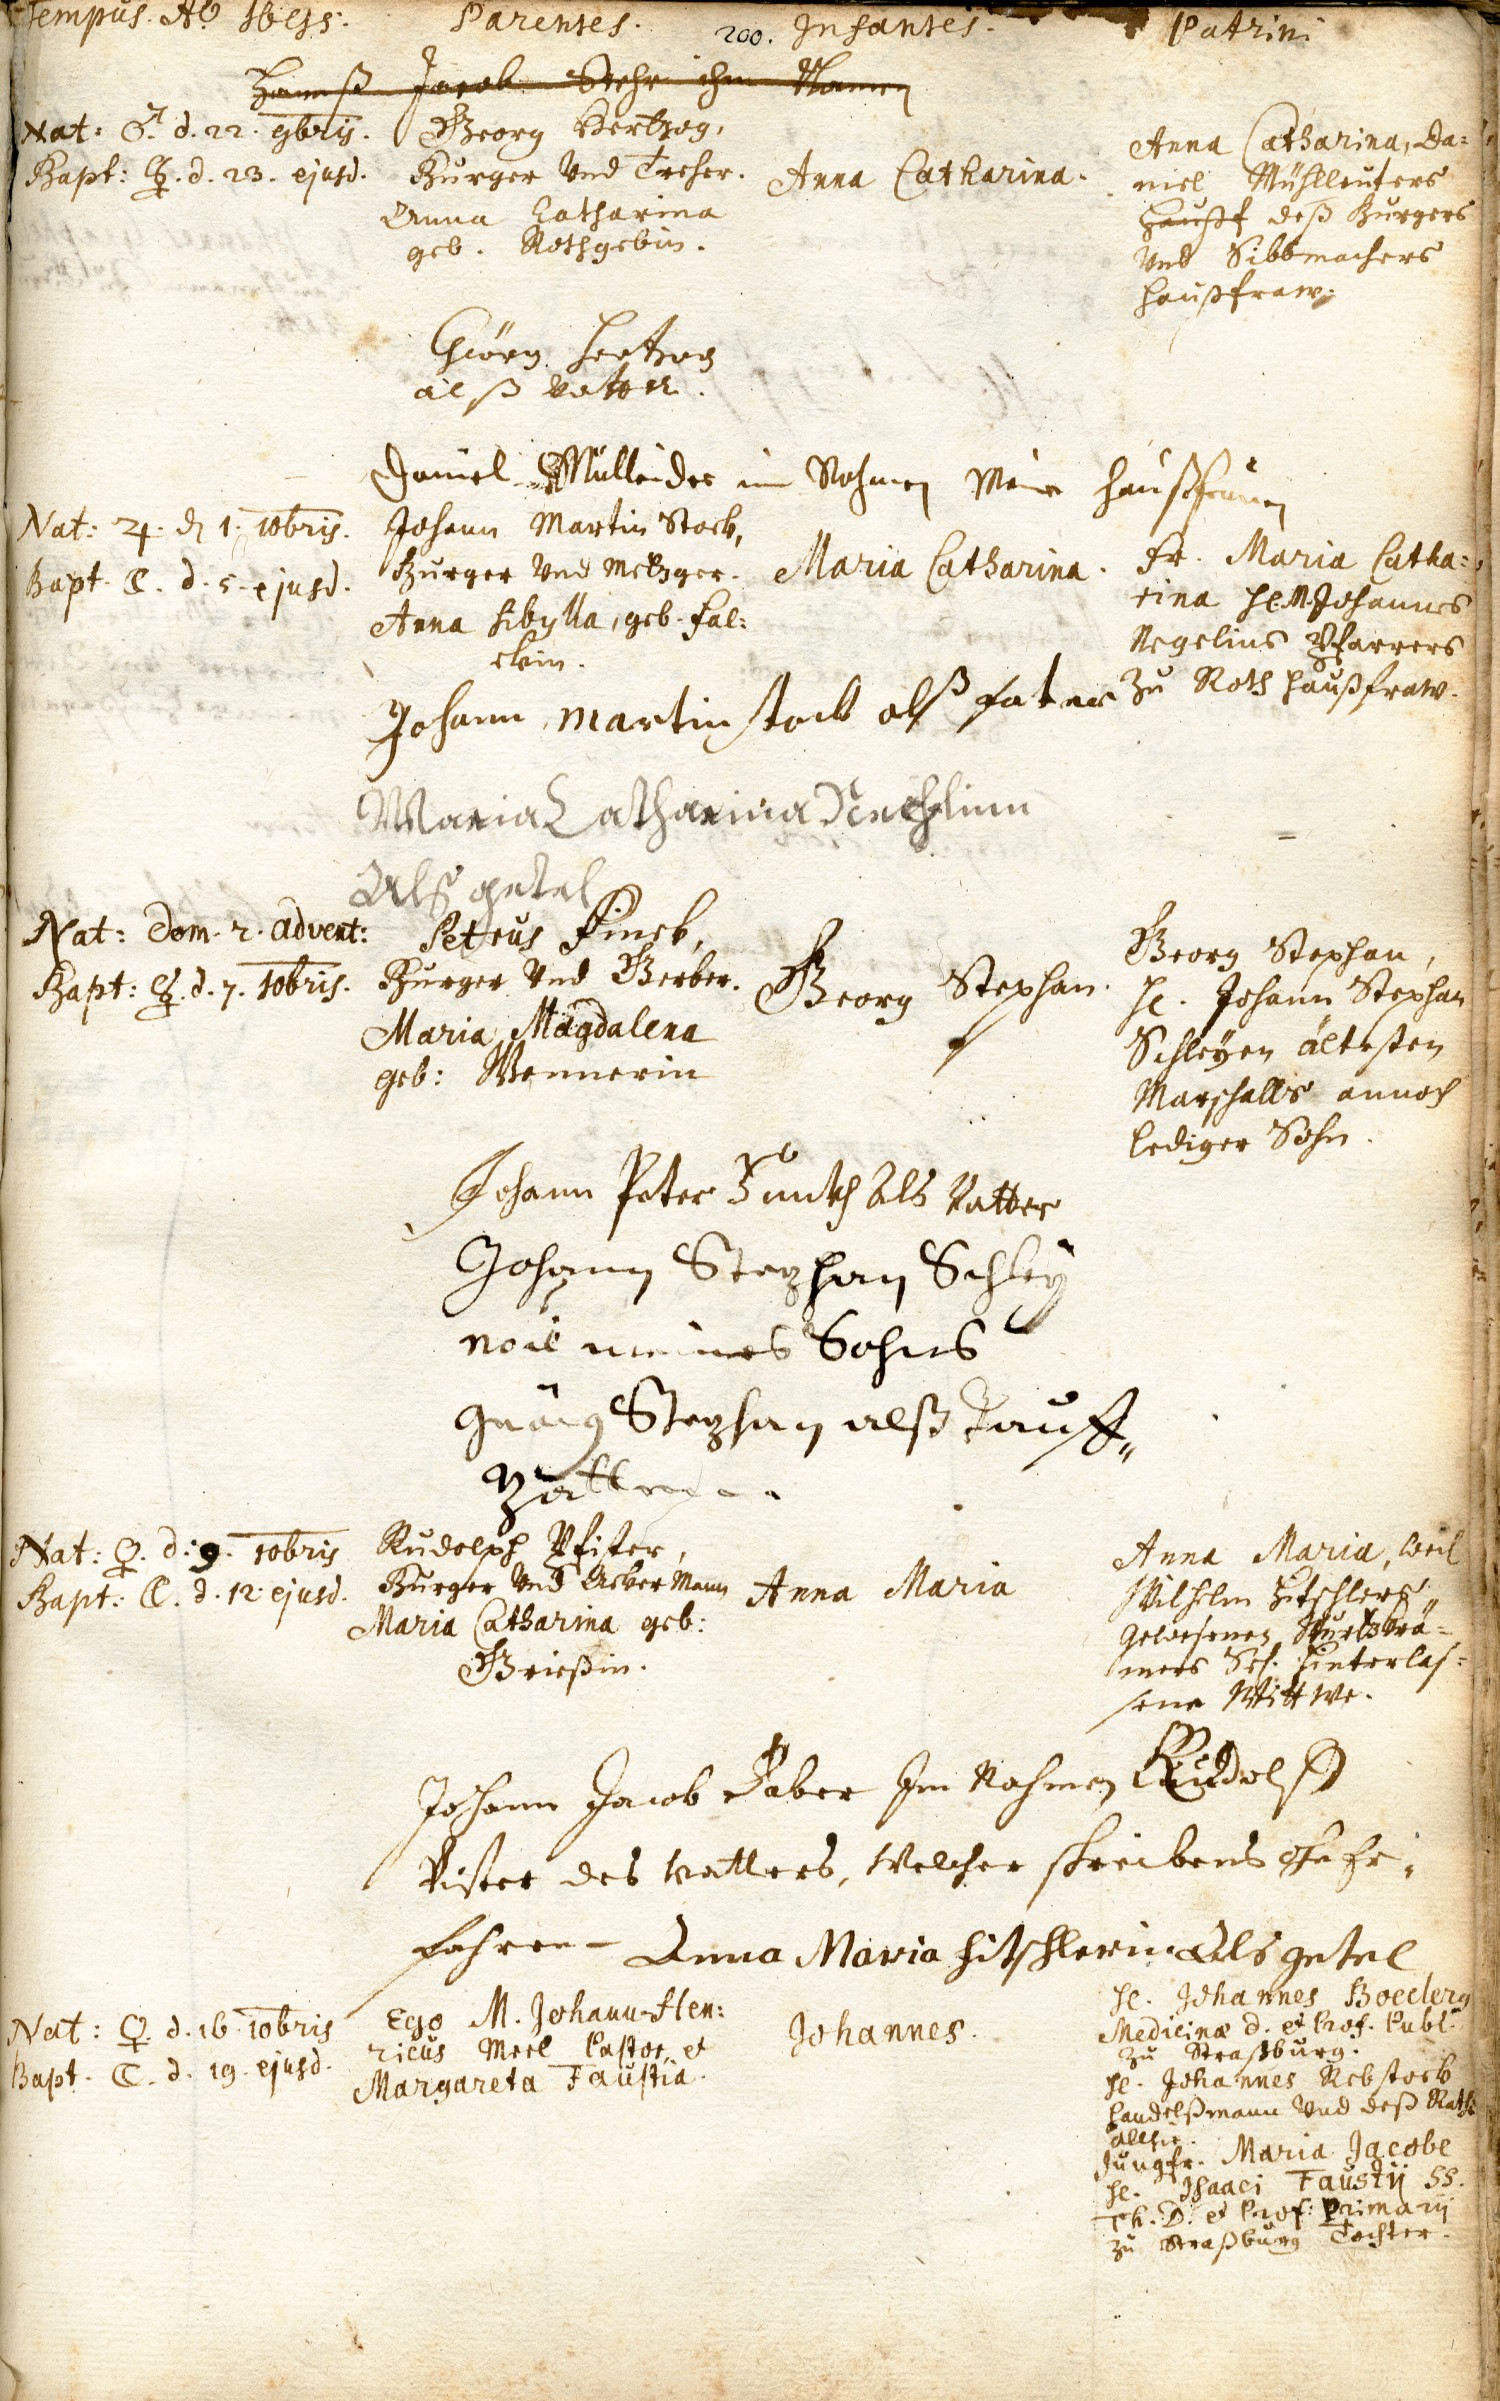 Tempus. Aô 1695. Parentes. 200. Infantes. Patrini
Hannß Jacob Stehr ihm Namen
Nat: ♂. d. 22. 9bris.
Bapt: ☿. d. 23. ejusd.
Georg Hertzog,
Burger Und Treher.
Anna Catharina
geb. Rothgebin.
Anna Catharina.
Anna Catharina, Da=
niel Mühlleuters
haußf deß Burgers
Und Sibbmachers
haußfraw.
Geörg Hertzog
alß vatter.
Daniel Mülleider im Nahmen Meiner haußfrauen
Nat: ♃. d 1. 10bris.
Bapt. ☾. d. 5. ejusd.
Johann Martin Stock,
Burger Und Metzger.
Anna Sibylla, geb. Fal=
ckin.
Maria Catharina.
Fr. Maria Catha=
rina H. M. Johannes
Negelins Pfarrers
zu Roth haußfraw.
Johann Martin stock alß fater
Maria Catharina
Als getel
Nat: Dom. 2. Advent:
Bapt: ☿. d. 7. 10bris.
Petrus Finck,
Burger Und Gerber.
Maria Magdalena
geb: Wennerin
Georg Stephan.
Georg Stephan,
H. Johann Stephan
Schleyen ältesten
Marschalls annoch
lediger Sohn.
Johann Peter Als Vatter
Johann Stephan Schley
meines Sohns
Stephan alß Tauff„
Nat: ♀. d. 9. 10bris
Bapt: ☾. d. 12. ejusd.
Rudolph Pfister,
Burger Und Acker Mann
Maria Catharina geb:
Grießin.
Anna Maria
Anna Maria, weil
Wilhelm Hitschlers
gewesenen Wurtzkrä=
mers Sel. hinterlas=
sene Wittwe.
Johann Jacob Faber Im Nahmen Rudolff
Pister des vatters, Welcher schreibens
fahren – Anna Maria hitschlerin Als getel
Nat: ♀. d. 16. 10bris
Bapt. ☾. d. 19. ejusd.
Ego M. Johann-Hen:
ricus Meel Pastor, et
Margareta Faustia.
Johannes.
H. Johannes Boeclerg
Medicinæ D. et Prof. Publ.
zu Straßburg.
H. Johannes Rebstock
Handelßmann Und deß Raths
allhie.
Jungfr. Maria Jacobe
H. Isaaci Faustij SS.
Th. D. et Prof: Primarij
zu Straßburg Tochter.